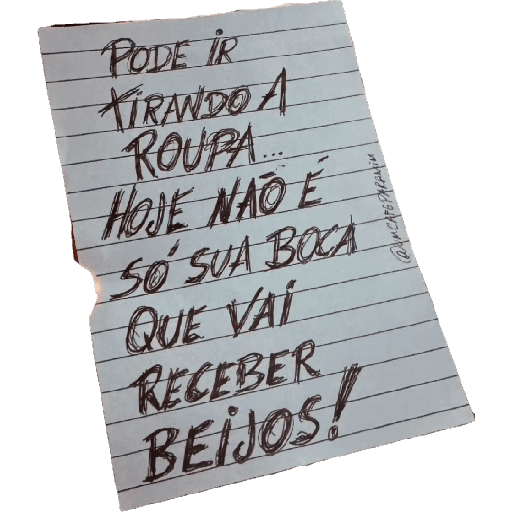 PODE IR
TIRANDO A
ROUPA...
HOJE NÃO É
SÓ SUA BOCA
QUE VAI
RECEBER
BEIJOS!
@UMCAFEPARAMIM